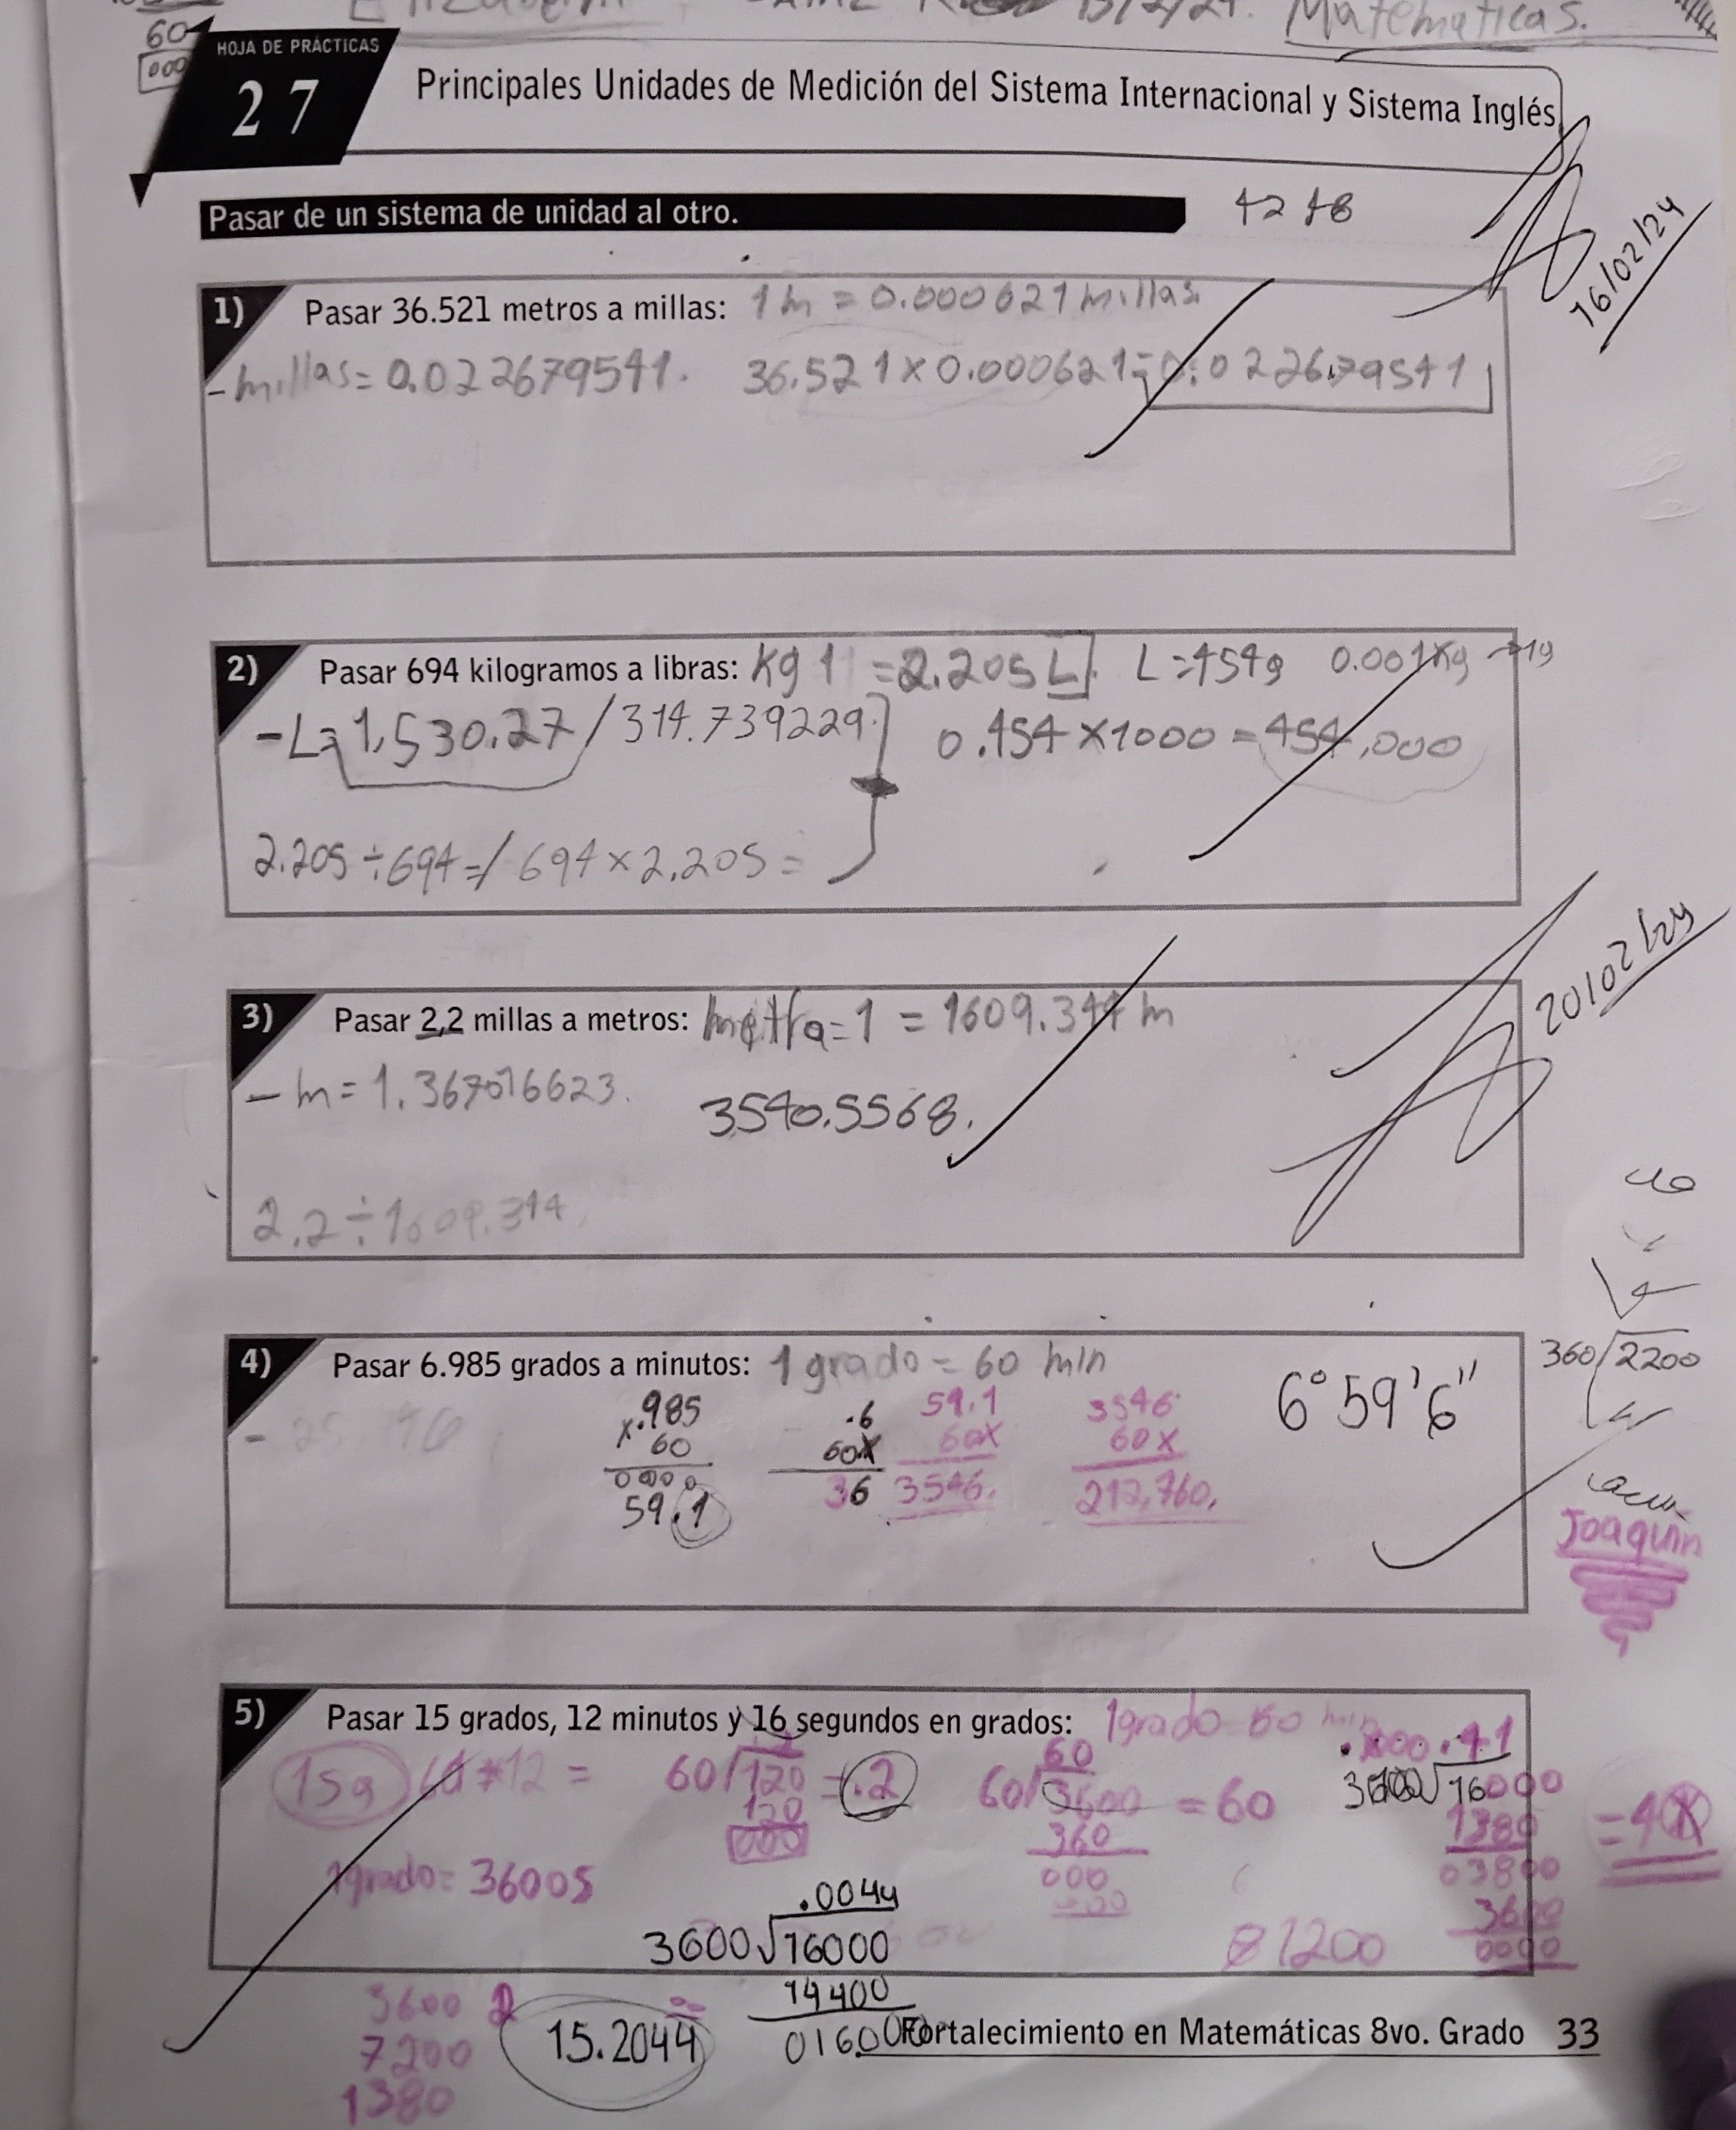 Matematicas.
60
000
HOJA DE PRÁCTICAS
27
Principales Unidades de Medición del Sistema Internacional y Sistema Inglés
16/02/24
Pasar de un sistema de unidad al otro.
1) Pasar 36.521 metros a millas: 1m = 0.000621 millas.
- millas = 0.022679541. 36.521 x 0.000621 = 0.022679541
2) Pasar 694 kilogramos a libras: Kg 1 = 2.205 L L = 454g 0.001Kg → 1g
- L = 1,530.27 / 314.739229 0.454 x 1000 = 454,000
2.205 ÷ 694 = / 694 x 2.205 =
20/02/24
3) Pasar 2,2 millas a metros: = 1 = 1609.344 m
- m = 1.367016623.
3540.5568.
2.2 ÷ 1609.344
4) Pasar 6.985 grados a minutos: 1 grado = 60 min
6° 59' 6"
360 2200
x .985 .6 59.1 3546
60 60x 60x 60x
0000 36 3546. 212,760.
59.1
Joaquin
5) Pasar 15 grados, 12 minutos y 16 segundos en grados: 1grado = 60 min
15g 12 = 60 120 = .2 60 3600 = 60 16000
120 360 1380
000 000 03800
1grado = 3600s
.0044
3600 16000
1200
14400
01600
3600 2
7200
1380
15.2044
Fortalecimiento en Matemáticas 8vo. Grado 33